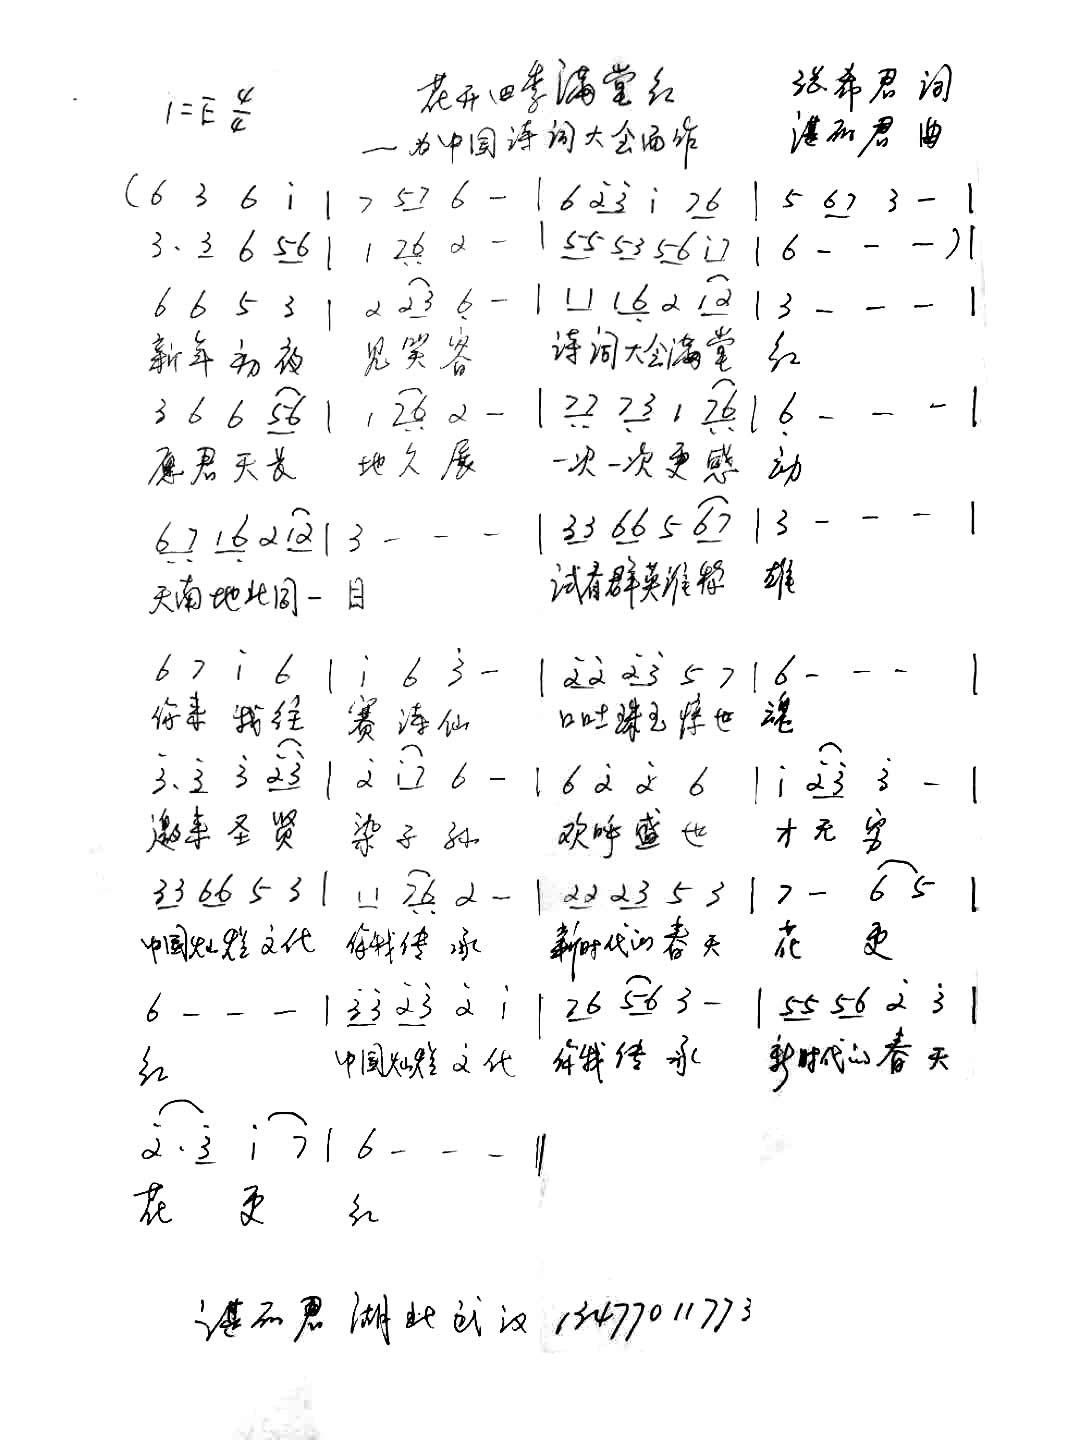 1=E 4/4 花开四季满堂红 张希君 词
—为中国诗词大会而作 湛丽君 曲
(6 3 6 i | 7 57 6 - | 6 2̇3̇ i 76 | 5 67 3 - |
3. 3 6 56 | 1 7̣6̣ 2 - | 55 53 56 i7 | 6 - - - )|
6 6 5 3 | 2 23 6̣ - | 11 16̣ 2 12 | 3 - - - |
新年初夜 见笑容 诗词大会满堂 红
3 6 6 56 | 1 7̣6̣ 2 - | 7̣7̣ 7̣3 1 7̣6̣ | 6̣ - - - |
愿君天长 地久展 一次一次更感 动
6̣7̣ 16̣ 2 12 | 3 - - - | 33 66 5 67 | 3 - - - |
天南地北同一日 试看群英谁称 雄
6 7 i 6 | i 6 3̇ - | 2̇2̇ 2̇3̇ 5 7 | 6 - - - |
你来我往 赛诗仙 口吐珠玉惊世 魂
3̇. 3̇ 3̇ 2̇3̇ | 2̇ i7 6 - | 6 2̇ 2̇ 6 | i 2̇3̇ 3̇ - |
激来圣贤 染子孙 欢呼盛世 才无穷
33 66 5 3 | 11 7̣6̣ 2 - | 22 23 5 3 | 7 - 6 5 |
中国灿烂文代 你我传承 新时代的春天 花 更
6 - - - | 3̇3̇ 2̇3̇ 2̇ i | 76 56 3 - | 55 56 2̇ 3̇ |
红 中国灿烂文代 你我传承 新时代的春天
2̇. 3̇ i 7 | 6 - - - ‖
花 更 红
湛丽君 湖北武汉 13477011773